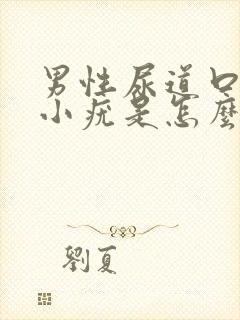 男性尿道口
小疣是怎麼
劉夏